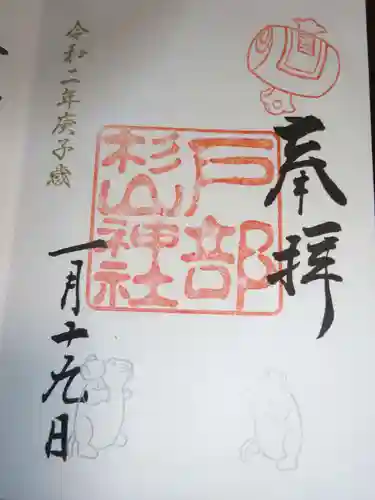 奉拝
戸部
杉山神社
令和二年庚子歳
一月十九日